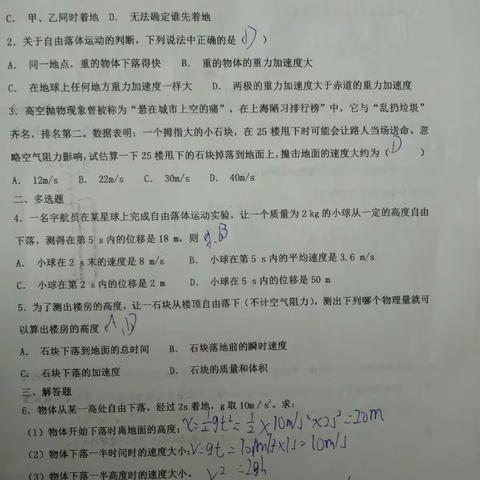 C. 甲、乙同时着地 D. 无法确定谁先着地
2. 关于自由落体运动的判断，下列说法中正确的是（ D ）
A. 同一地点，重的物体下落得快 B. 重的物体的重力加速度大
C. 在地球上任何地方重力加速度一样大 D. 两极的重力加速度大于赤道的重力加速度
3. 高空抛物现象曾被称为“悬在城市上空的痛”，在上海陋习排行榜”中，它与“乱扔垃圾”
齐名，排名第二。数据表明：一个拇指大的小石块，在 25 楼甩下时可能会让路人当场送命。忽
略空气阻力影响，试估算一下 25 楼甩下的石块掉落到地面上，撞击地面的速度大约为（ D ）
A. 12m/s B. 22m/s C. 30m/s D. 40m/s
二、多选题
4. 一名宇航员在某星球上完成自由落体运动实验，让一个质量为 2 kg 的小球从一定的高度自由
下落，测得在第 5 s 内的位移是 18 m，则 B
A. 小球在 2 s 末的速度是 8 m/s B. 小球在第 5 s 内的平均速度是 3.6 m/s
C. 小球在第 2 s 内的位移是 2 m D. 小球在 5 s 内的位移是 50 m
5. 为了测出楼房的高度，让一石块从楼顶自由落下（不计空气阻力），测出下列哪个物理量就可
以算出楼房的高度 A、D
A. 石块下落到地面的总时间 B. 石块落地前的瞬时速度
C. 石块下落的加速度 D. 石块的质量和体积
三、解答题
6. 物体从某一高处自由下落，经过 2s 着地，g 取 10m / s²。求：
(1) 物体开始下落时离地面的高度； x=½gt²=½×10m/s²×2s²=20m
(2) 物体下落一半时间时的速度大小； v=gt=10m/s²×1s=10m/s
(3) 物体下落一半高度时的速度大小。 v²=2gh